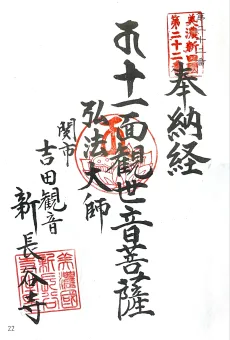 奉納経
美濃新四国
第二十二番
十一面観世音菩薩
弘法大師
関市
吉田観音
新長谷寺
美濃國
新長谷
寺
22